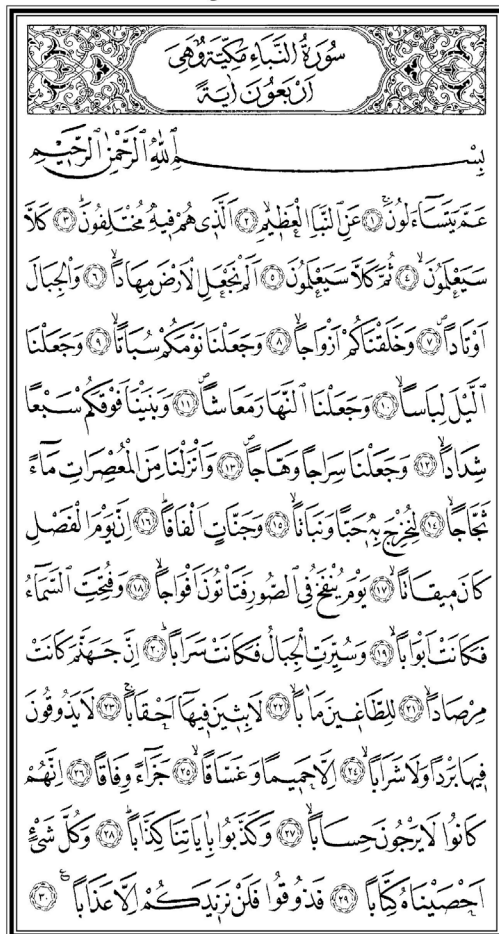 سُورَةُ النَّبَاءِ مَكِّيَّةٌ وَهِيَ
اَرْبَعُونَ اٰيَةً
بِسْمِ اللّٰهِ الرَّحْمٰنِ الرَّحِيمِ
عَمَّ يَتَسَٓاءَلُونَۚ ﴿١﴾ عَنِ النَّبَأِ الْعَظٖيمِۙ ﴿٢﴾ اَلَّذٖي هُمْ فٖيهِ مُخْتَلِفُونَۜ ﴿٣﴾ كَلَّا
سَيَعْلَمُونَۙ ﴿٤﴾ ثُمَّ كَلَّا سَيَعْلَمُونَ ﴿٥﴾ اَلَمْ نَجْعَلِ الْاَرْضَ مِهَاداًۙ ﴿٦﴾ وَالْجِبَالَ
اَوْتَاداًۖ ﴿٧﴾ وَخَلَقْنَاكُمْ اَزْوَاجاًۙ ﴿٨﴾ وَجَعَلْنَا نَوْمَكُمْ سُبَاتاًۙ ﴿٩﴾ وَجَعَلْنَا
الَّيْلَ لِبَاساًۙ ﴿١٠﴾ وَجَعَلْنَا النَّهَارَ مَعَاشاًۖ ﴿١١﴾ وَبَنَيْنَا فَوْقَكُمْ سَبْعاً
شِدَاداًۙ ﴿١٢﴾ وَجَعَلْنَا سِرَاجاً وَهَّاجاًۖ ﴿١٣﴾ وَاَنْزَلْنَا مِنَ الْمُعْصِرَاتِ مَٓاءً
ثَجَّاجاًۙ ﴿١٤﴾ لِنُخْرِجَ بِهٖ حَباًّ وَنَبَاتاًۙ ﴿١٥﴾ وَجَنَّاتٍ اَلْفَافاًۜ ﴿١٦﴾ اِنَّ يَوْمَ الْفَصْلِ
كَانَ مٖيقَاتاًۙ ﴿١٧﴾ يَوْمَ يُنْفَخُ فِي الصُّورِ فَتَأْتُونَ اَفْوَاجاًۙ ﴿١٨﴾ وَفُتِحَتِ السَّمَٓاءُ
فَكَانَتْ اَبْوَاباًۙ ﴿١٩﴾ وَسُيِّرَتِ الْجِبَالُ فَكَانَتْ سَرَاباًۜ ﴿٢٠﴾ اِنَّ جَهَنَّمَ كَانَتْ
مِرْصَاداًۙ ﴿٢١﴾ لِلطَّاغٖينَ مَاٰباًۙ ﴿٢٢﴾ لَابِثٖينَ فٖيهَٓا اَحْقَاباًۚ ﴿٢٣﴾ لَا يَذُوقُونَ
فٖيهَا بَرْداً وَلَا شَرَاباًۙ ﴿٢٤﴾ اِلَّا حَمٖيماً وَغَسَّاقاًۙ ﴿٢٥﴾ جَزَٓاءً وِفَاقاًۜ ﴿٢٦﴾ اِنَّهُمْ
كَانُوا لَا يَرْجُونَ حِسَاباًۙ ﴿٢٧﴾ وَكَذَّبُوا بِاٰيَاتِنَا كِذَّاباًۜ ﴿٢٨﴾ وَكُلَّ شَيْءٍ
اَحْصَيْنَاهُ كِتَاباًۙ ﴿٢٩﴾ فَذُوقُوا فَلَنْ نَزٖيدَكُمْ اِلَّا عَذَاباًࣖ ﴿٣٠﴾